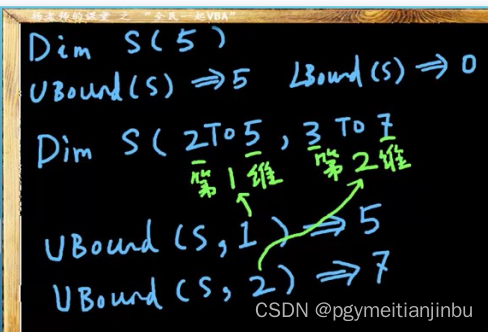 杨老师的课堂 之 “全民一起VBA”
Dim S(5)
UBound(S) ⇒ 5 LBound(S) ⇒ 0
Dim S( 2 To 5 , 3 To 7
第1维 第2维
UBound (S, 1 ) ⇒ 5
UBound (S, 2 ) ⇒ 7
CSDN @pgymeitianjinbu